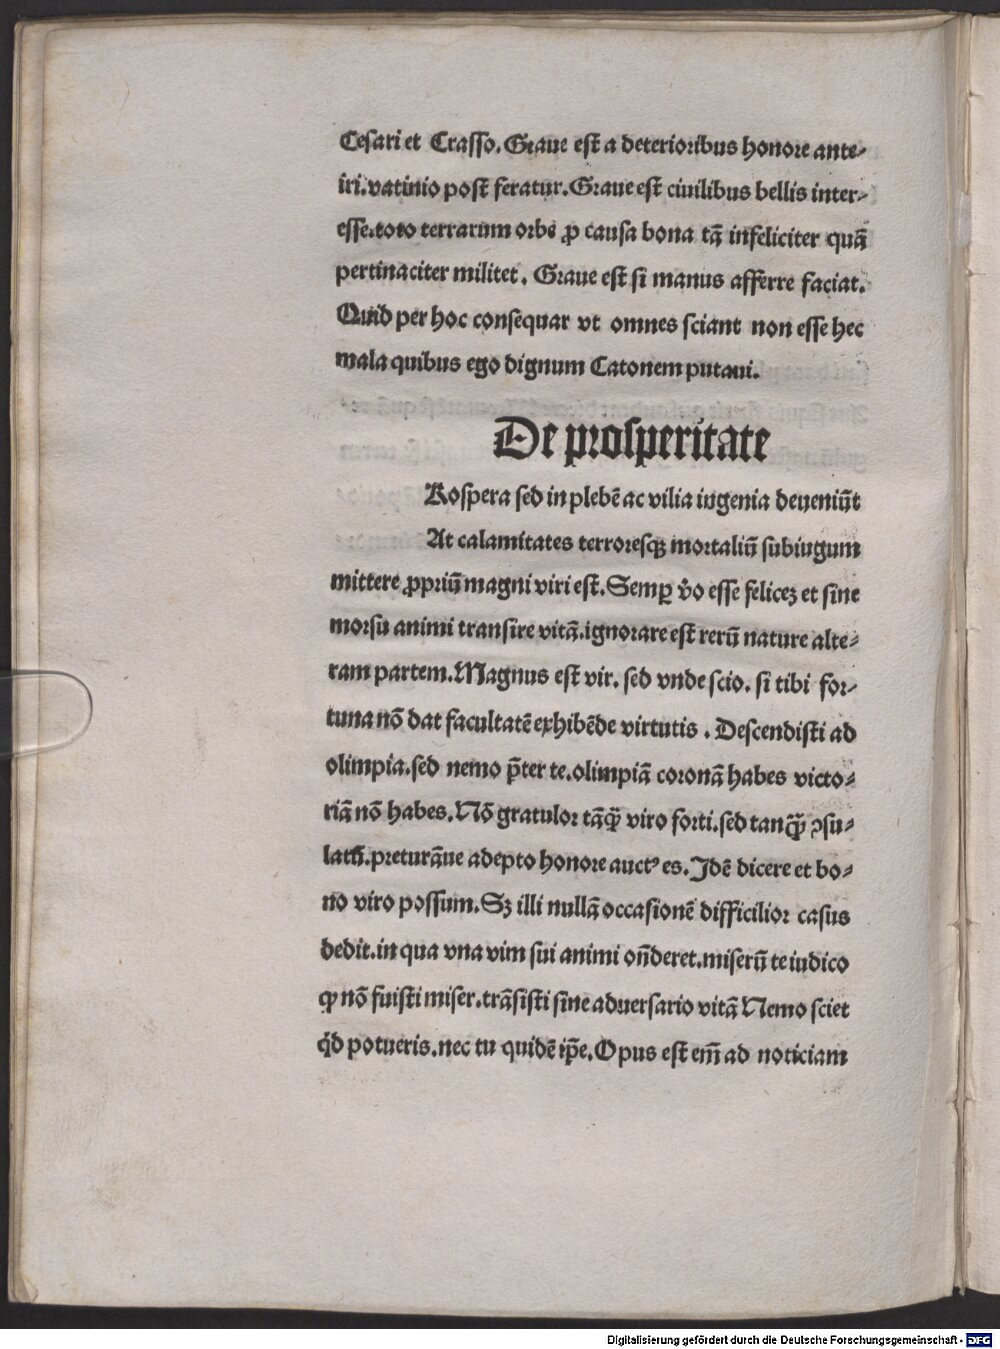 Cesari et Crasso. Graue est a deterioribus honore ante-
iri. vatinio post feratur. Graue est ciuilibus bellis inter-
esse. toto terrarum orbe ꝓ causa bona tā infeliciter quā
pertinaciter militet. Graue est si manus afferre faciat.
Quid per hoc consequar vt omnes sciant non esse hec
mala quibus ego dignum Catonem putaui.
De prosperitate
Rospera sed in plebē ac vilia ingenia deueniūt
At calamitates terroresqꝫ mortaliū subiugum
mittere ꝓpriū magni viri est. Semꝑ v̄o esse feliceꝫ et sine
morsu animi transire vitā. ignorare est rerū nature alte-
ram partem. Magnus est vir. sed vnde scio. si tibi for-
tuna nō dat facultatē exhibēde virtutis. Descendisti ad
olimpia. sed nemo p̄ter te. olimpiā coronā habes victo-
riā nō habes. Nō gratulor tāꝙ̄ viro forti. sed tanꝙ̄ ꝯsu-
latū. preturāue adepto honore auctꝰ es. Idē dicere et bo-
no viro possum. Sꝫ illi nullā occasionē difficilior casus
dedit. in qua vna vim sui animi on̄deret. miserū te iudico
ꝙ nō fuisti miser. trāsisti sine aduersario vitā Nemo sciet
qͥd potueris. nec tu quidē ip̄e. Opus est em̄ ad noticiam
Digitalisierung gefördert durch die Deutsche Forschungsgemeinschaft - DFG